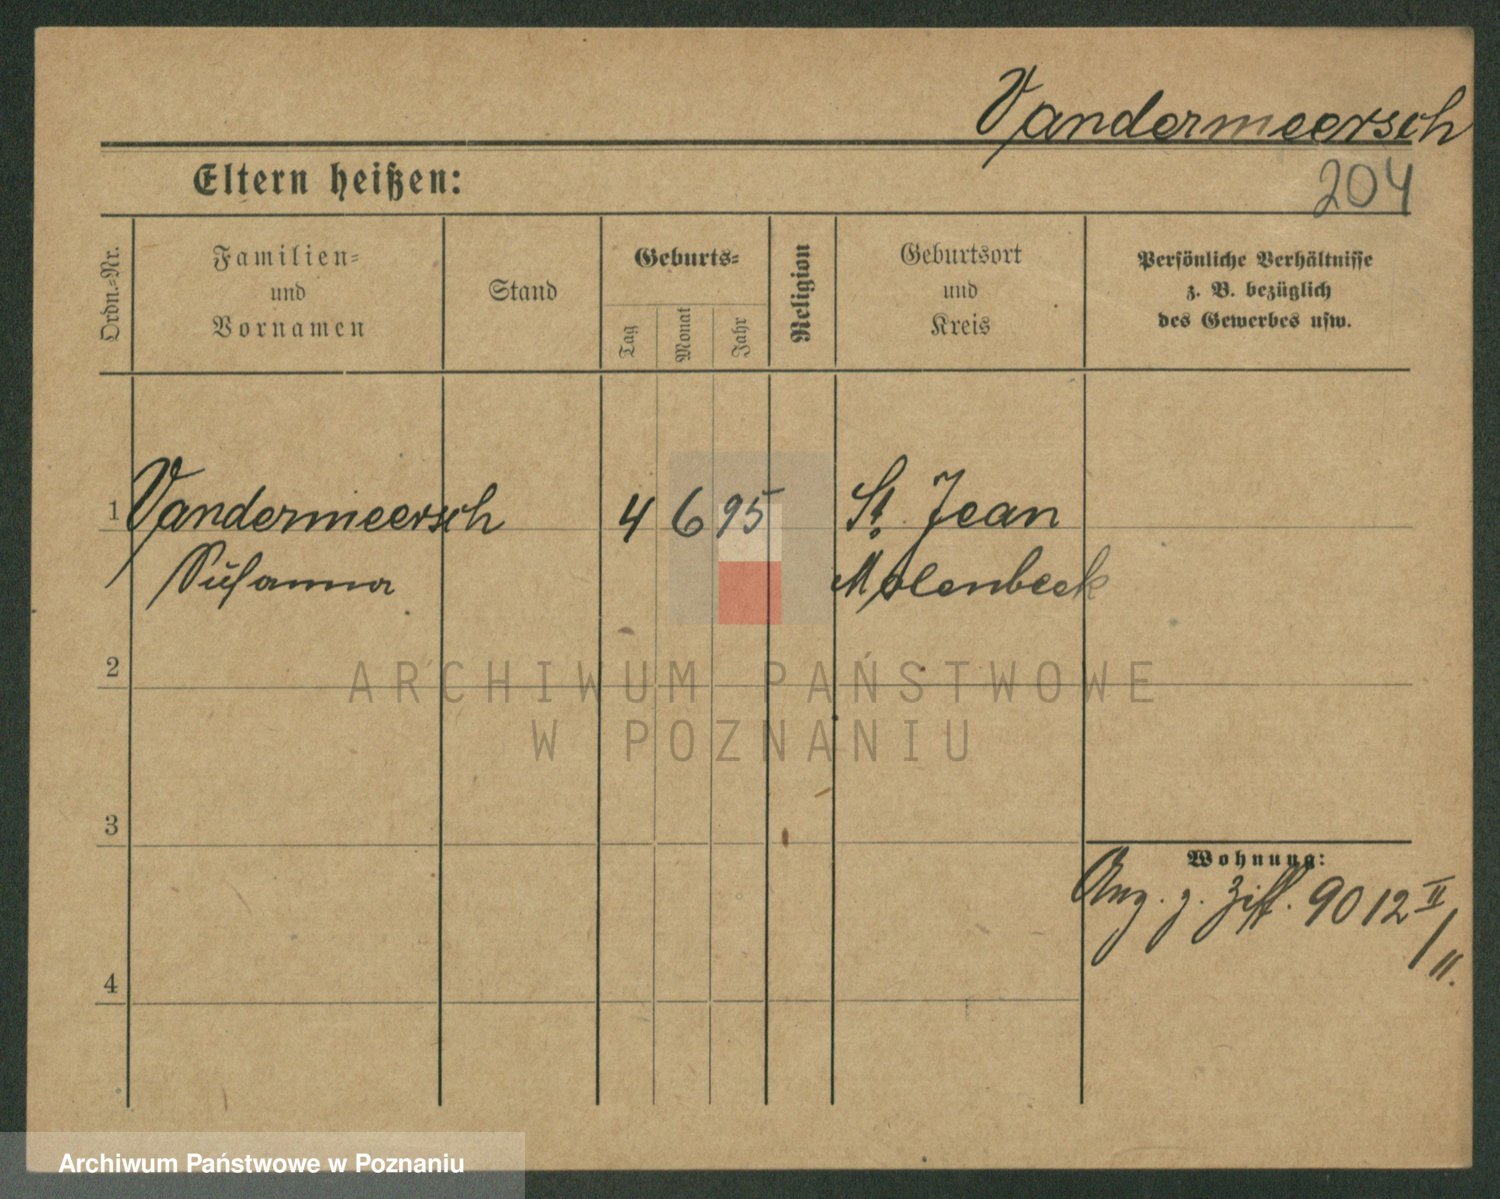 Vandermeersch
204
Eltern heißen:
Ordn.-Nr.
Familien-
und
Vornamen
Stand
Geburts-
Tag
Monat
Jahr
Religion
Geburtsort
und
Kreis
Persönliche Verhältnisse
z. B. bezüglich
des Gewerbes usw.
1 Vandermeersch 4 6 95 St. Jean
Susanna Molenbeek
2
ARCHIWUM PAŃSTWOWE
W POZNANIU
3
Wohnung:
Anz. z. Ziff. 9012 II/11.
4
Archiwum Państwowe w Poznaniu